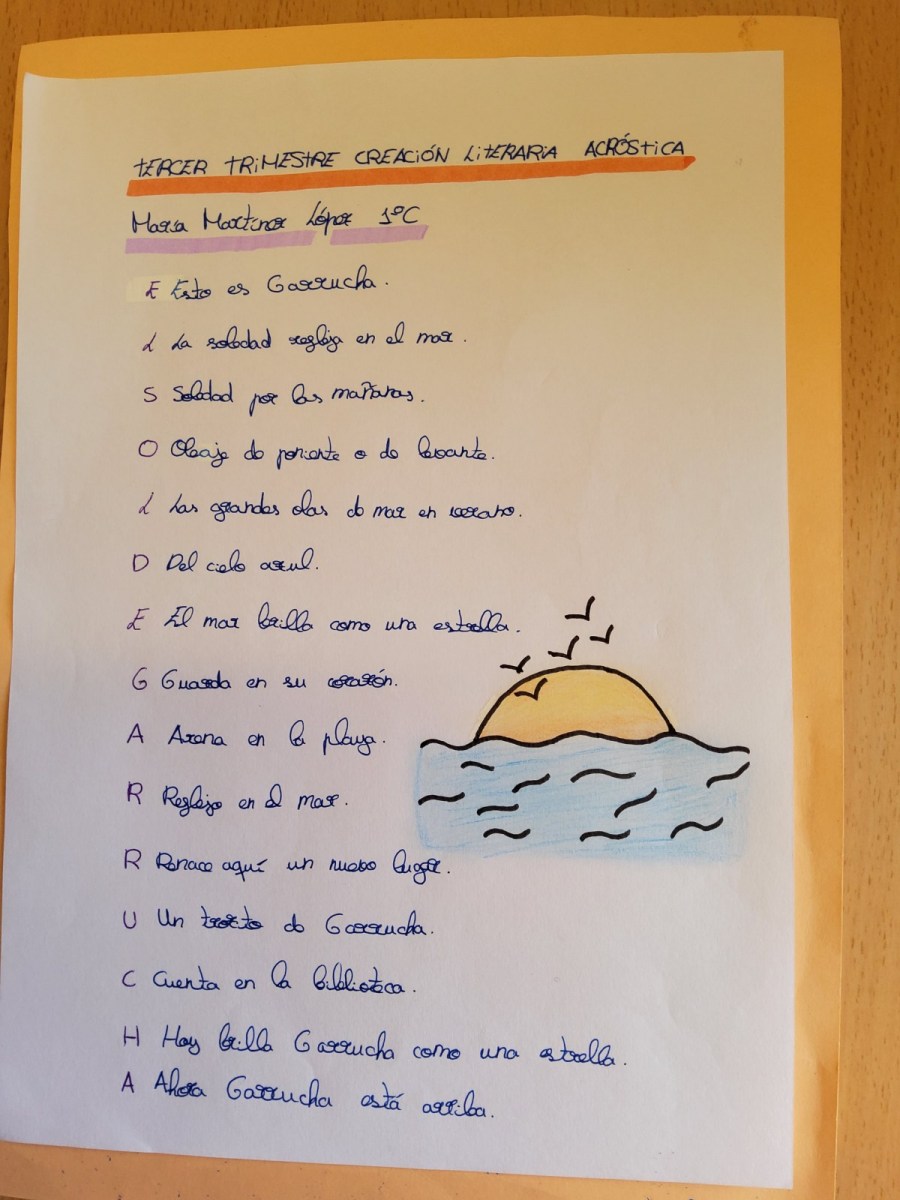 TERCER TRIMESTRE CREACIÓN LITERARIA ACRÓSTICA
María Martínez López 1ºC
E Esto es Garrucha.
L La soledad refleja en el mar.
S Soledad por las mañanas.
O Oleaje de poniente o de levante.
L Las grandes olas de mar en verano.
D Del cielo azul.
E El mar brilla como una estrella.
G Guarda en su corazón.
A Arena en la playa.
R Reflejo en el mar.
R Renace aquí un nuevo lugar.
U Un trozito de Garrucha.
C Cuenta en la biblioteca.
H Hoy brilla Garrucha como una estrella.
A Ahora Garrucha está arriba.